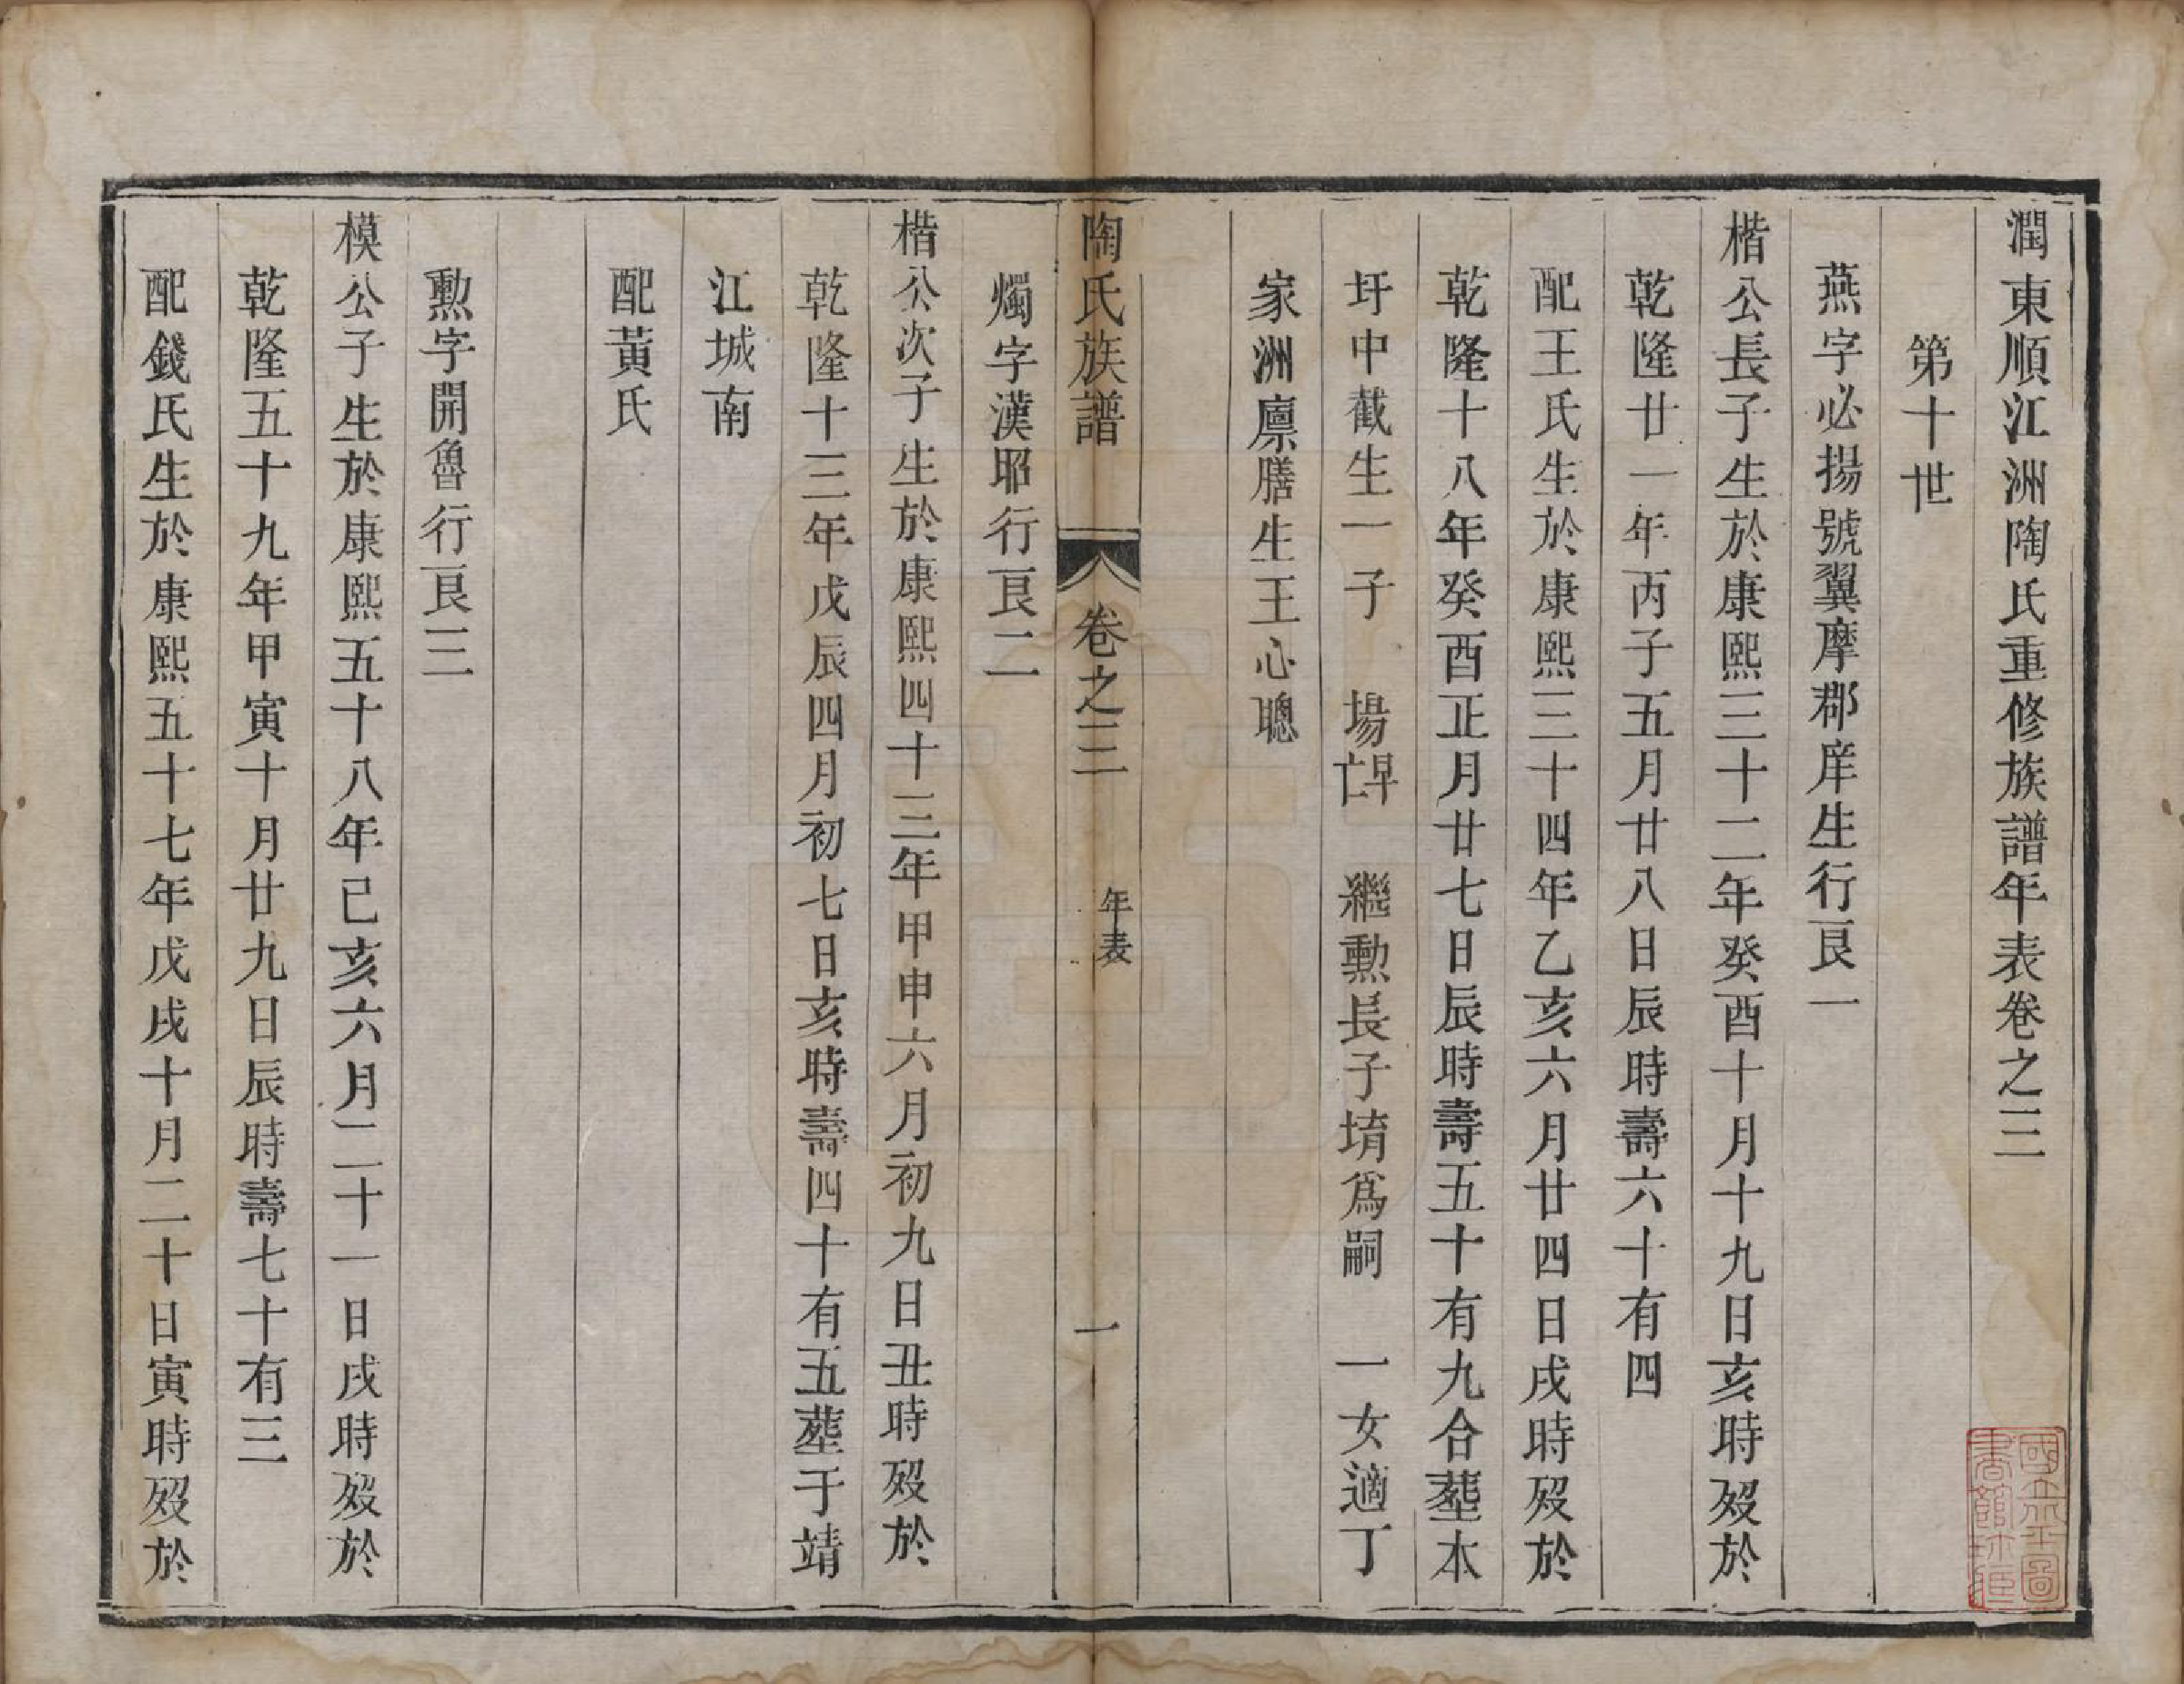 潤東順江洲陶氏重修族譜年表卷之三
第十世
燕字必揚號翼摩郡庠生行艮一
楷公長子生於康熙三十二年癸酉十月十九日亥時歿於
乾隆廿一年丙子五月廿八日辰時壽六十有四
配王氏生於康熙三十四年乙亥六月廿四日戌時歿於
乾隆十八年癸酉正月廿七日辰時壽五十有九合塟本
圩中截生一子　塲早亡　繼勲長子堉爲嗣　一女適丁
家洲廩膳生王心聰
陶氏族譜　卷之三　年表　一
燭字漢昭行艮二
楷公次子生於康熙四十三年甲申六月初九日丑時歿於
乾隆十三年戊辰四月初七日亥時壽四十有五塟于靖
江城南
配黃氏
勲字開魯行艮三
模公子生於康熙五十八年己亥六月二十一日戌時歿於
乾隆五十九年甲寅十月廿九日辰時壽七十有三
配錢氏生於康熙五十七年戊戌十月二十日寅時歿於
國立北平圖書館珍藏